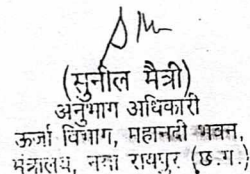 (सुनील मैत्री)
अनुभाग अधिकारी
ऊर्जा विभाग, महानदी भवन,
मंत्रालय, नया रायपुर (छ.ग.)